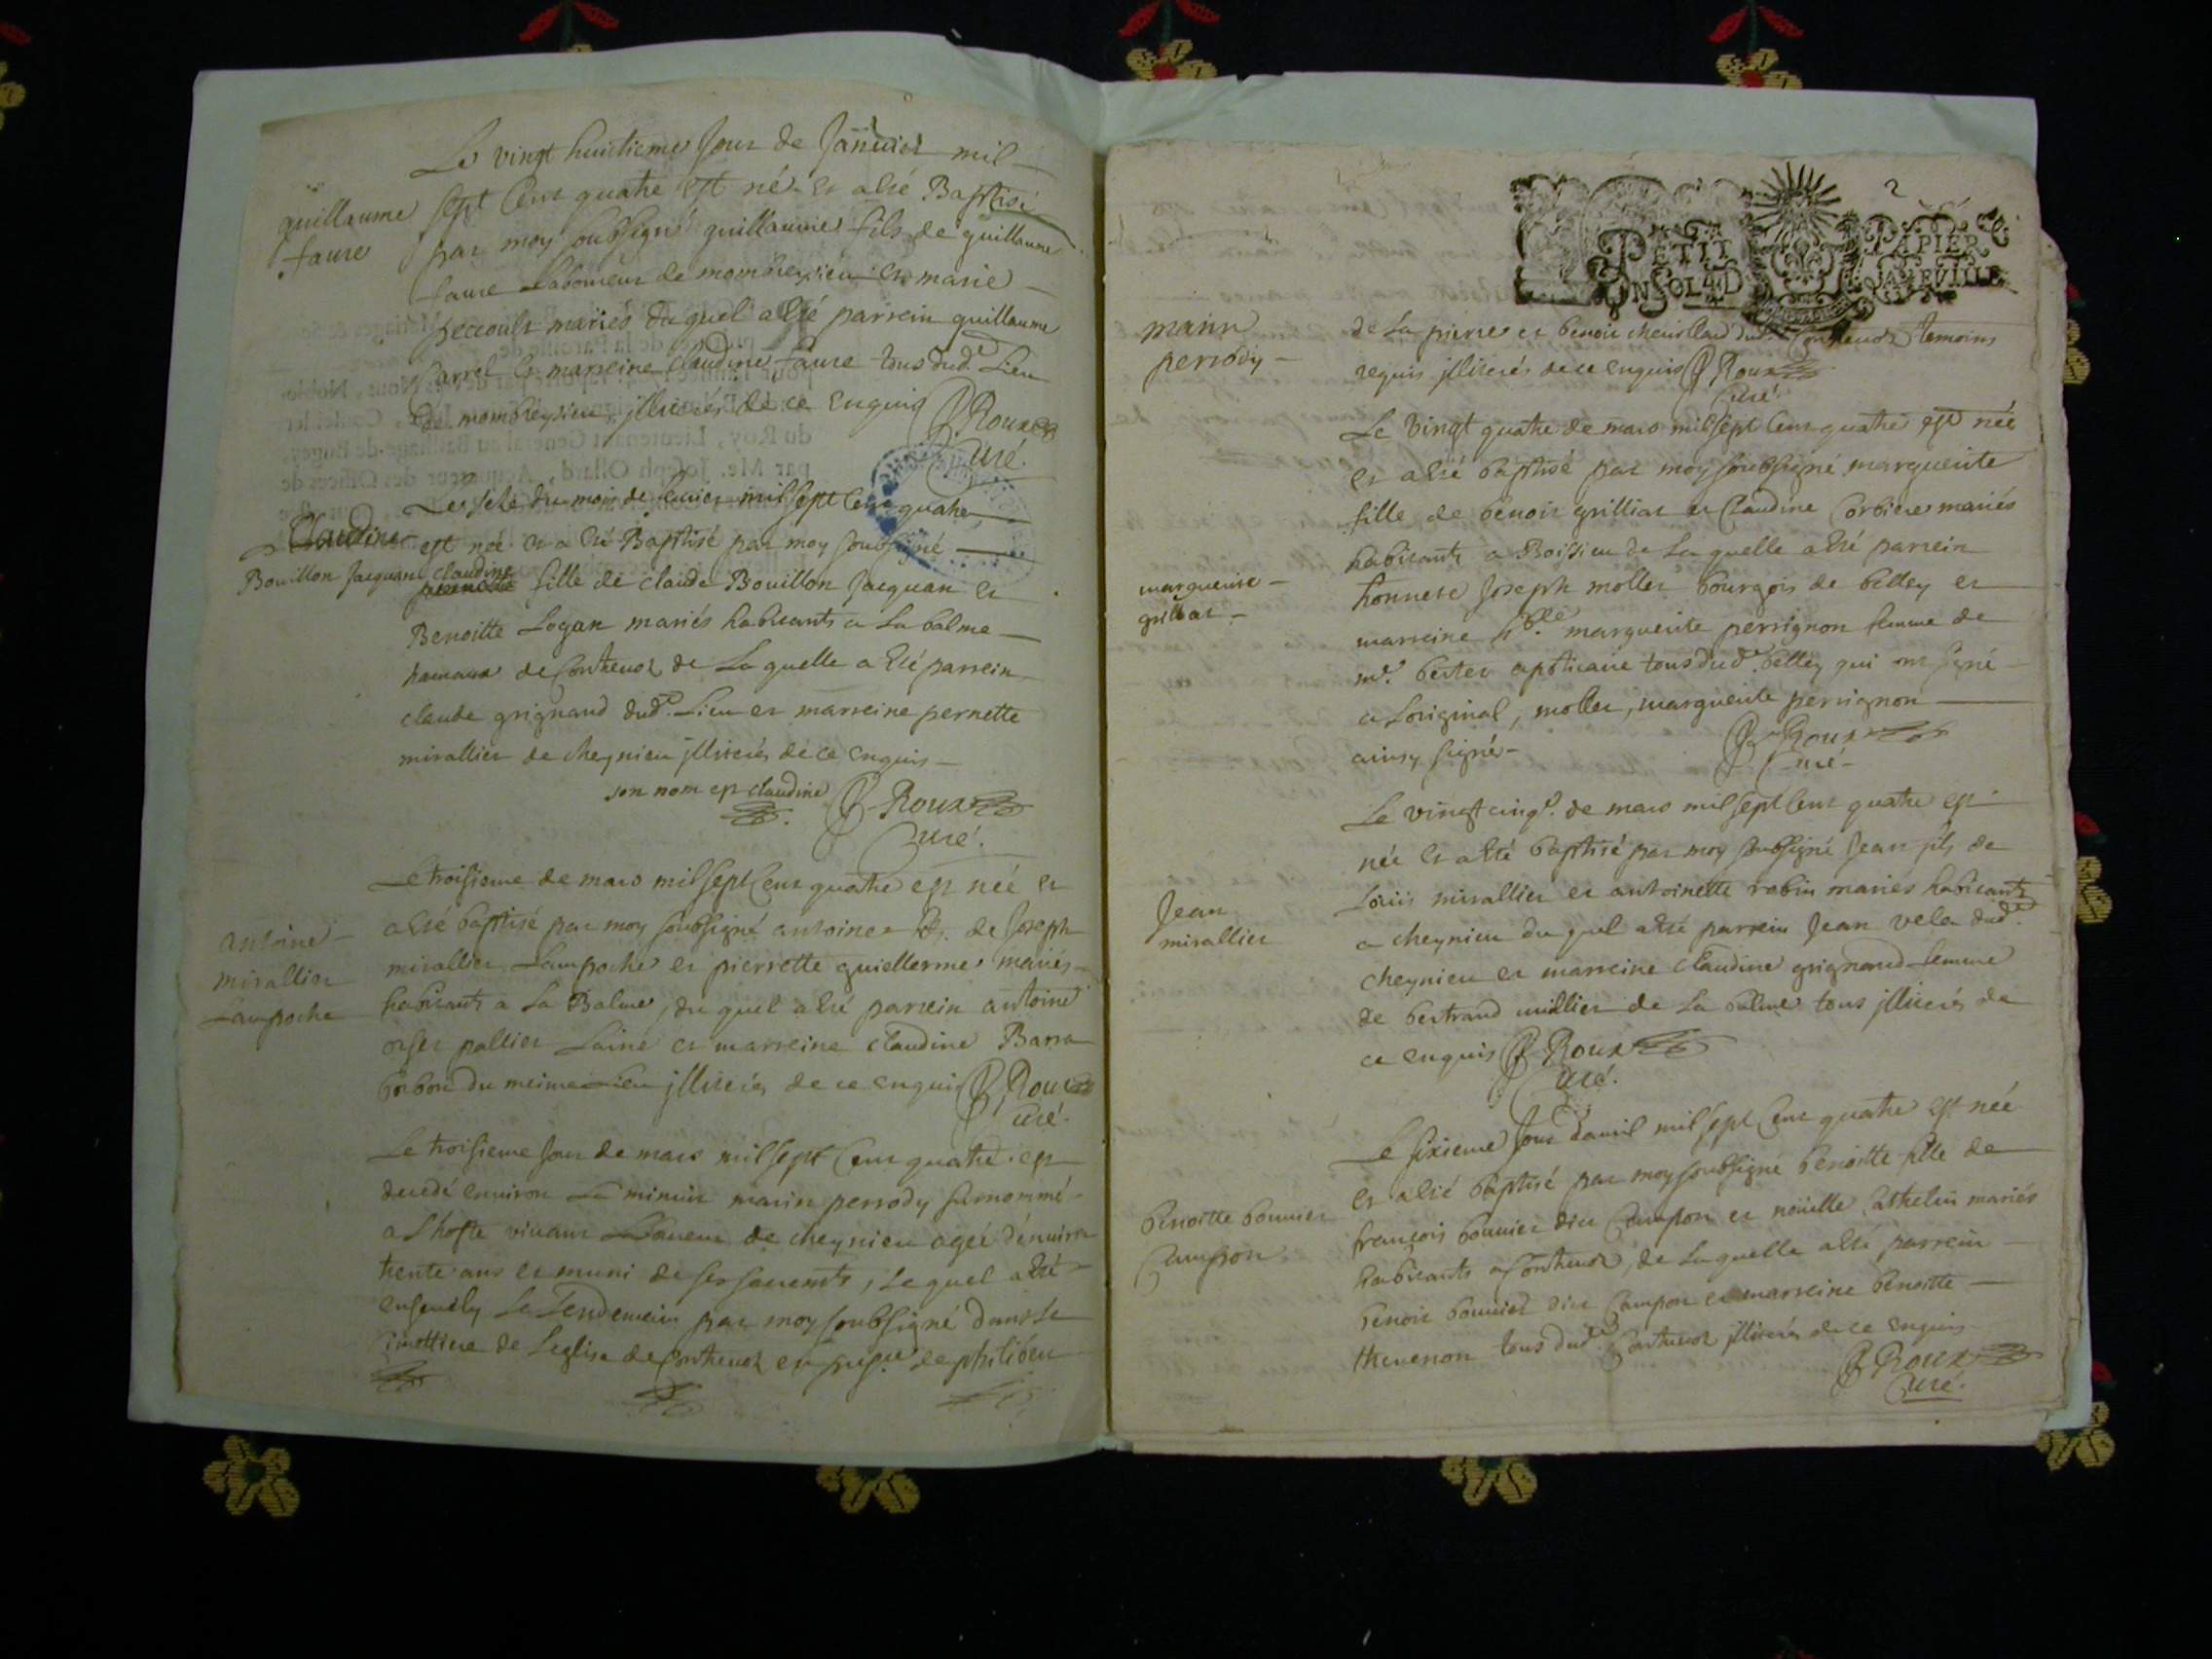 Le vingt huitieme Jour de Janvier mil
guillaume
faure
sept Cent quatre est né et a été Baptisé
par moy soubsigné guillaume fils de guillaume
faure Laboureur de mombreysieu et marie
peccoult mariés duquel a été parrein guillaume
Carrel et marreine Claudine faure tous dud. Lieu
de mombreysieu illiterés de ce enquis Roux
Curé.
Le du mois de mil sept Cent quatre
Claudine
Bouillon Jacquan
est née et a été Baptisé par moy soubsigné
claudine
fille de claude Bouillon Jacquan et
Benoitte Logan mariés habitants a La balme
hameau de Contrevoz de La quelle a été parrein
claude grignand dud. Lieu et marreine pernette
mirallier de cheynieu illiterés de ce enquis
son nom est claudine Roux
Curé.
antoine
mirallier
Lampoche
Le troisieme de mars mil sept Cent quatre est née et
a été baptisé par moy soubsigné antoine fils de Joseph
mirallier Lampoche et pierrette guiellerme mariés
habitants a La Balme, du quel a été parrein antoine
pallier Lainé et marreine claudine Barra
borbon du meime Lieu illiterés de ce enquis Roux
curé.
Le troisieme Jour de mars mil sept Cent quatre est
decedé environ La minuit marin perrody surnommé
a Lhoste vivant de cheynieu ageé d'environ
trente ans et muni de ses sacremts, Le quel a été
ensevely Le Lendemein par moy soubsigné dans Le
Cimettiere de Leglise de Contrevoz en de philibeu
2
PETIT PAPIER
UN SOL 4 D LA FEVILLE
marin
perrody
de La pierre et benoit chevillard dud. Contrevoz temoins
requis illiterés de ce enquis Roux
Curé
Le vingt quatre de mars mil sept Cent quatre est née
et a été baptisé par moy soubsigné marguerite
fille de benoit grilliat et Claudine Corbiere mariés
habitants a Boissieu de La quelle a été parrein
marguerite
grilliat
honnete Joseph mollet bourgois de belley et
marreine marguerite perrignon femme de
mr. apoticaire tous dud. belley qui ont signé
a Loriginal, mollet, marguerite perrignon
ainsy signé Roux
Curé
Le vingt cinq de mars mil sept Cent quatre est
née et a été baptisé par moy soubsigné Jean fils de
Louis mirallier et antoinette robin mariés habitants
Jean
mirallier
a cheynieu du quel a été parrein Jean vela dud.
cheynieu et marreine claudine grignand femme
de bertrand millier de La balme tous illiterés de
ce enquis Roux
Curé.
Le sixieme Jour d'avril mil sept Cent quatre est née
et a été baptisé par moy soubsigné benoitte fille de
benoitte bonnier
Campon
françois bonnier dit Campon et mariés
habitants a Contrevoz, de La quelle a été parrein
benoit bonnier dit Campon et marreine benoitte
thevenon tous dud. Contrevoz illiterés de ce enquis
Roux
Curé.